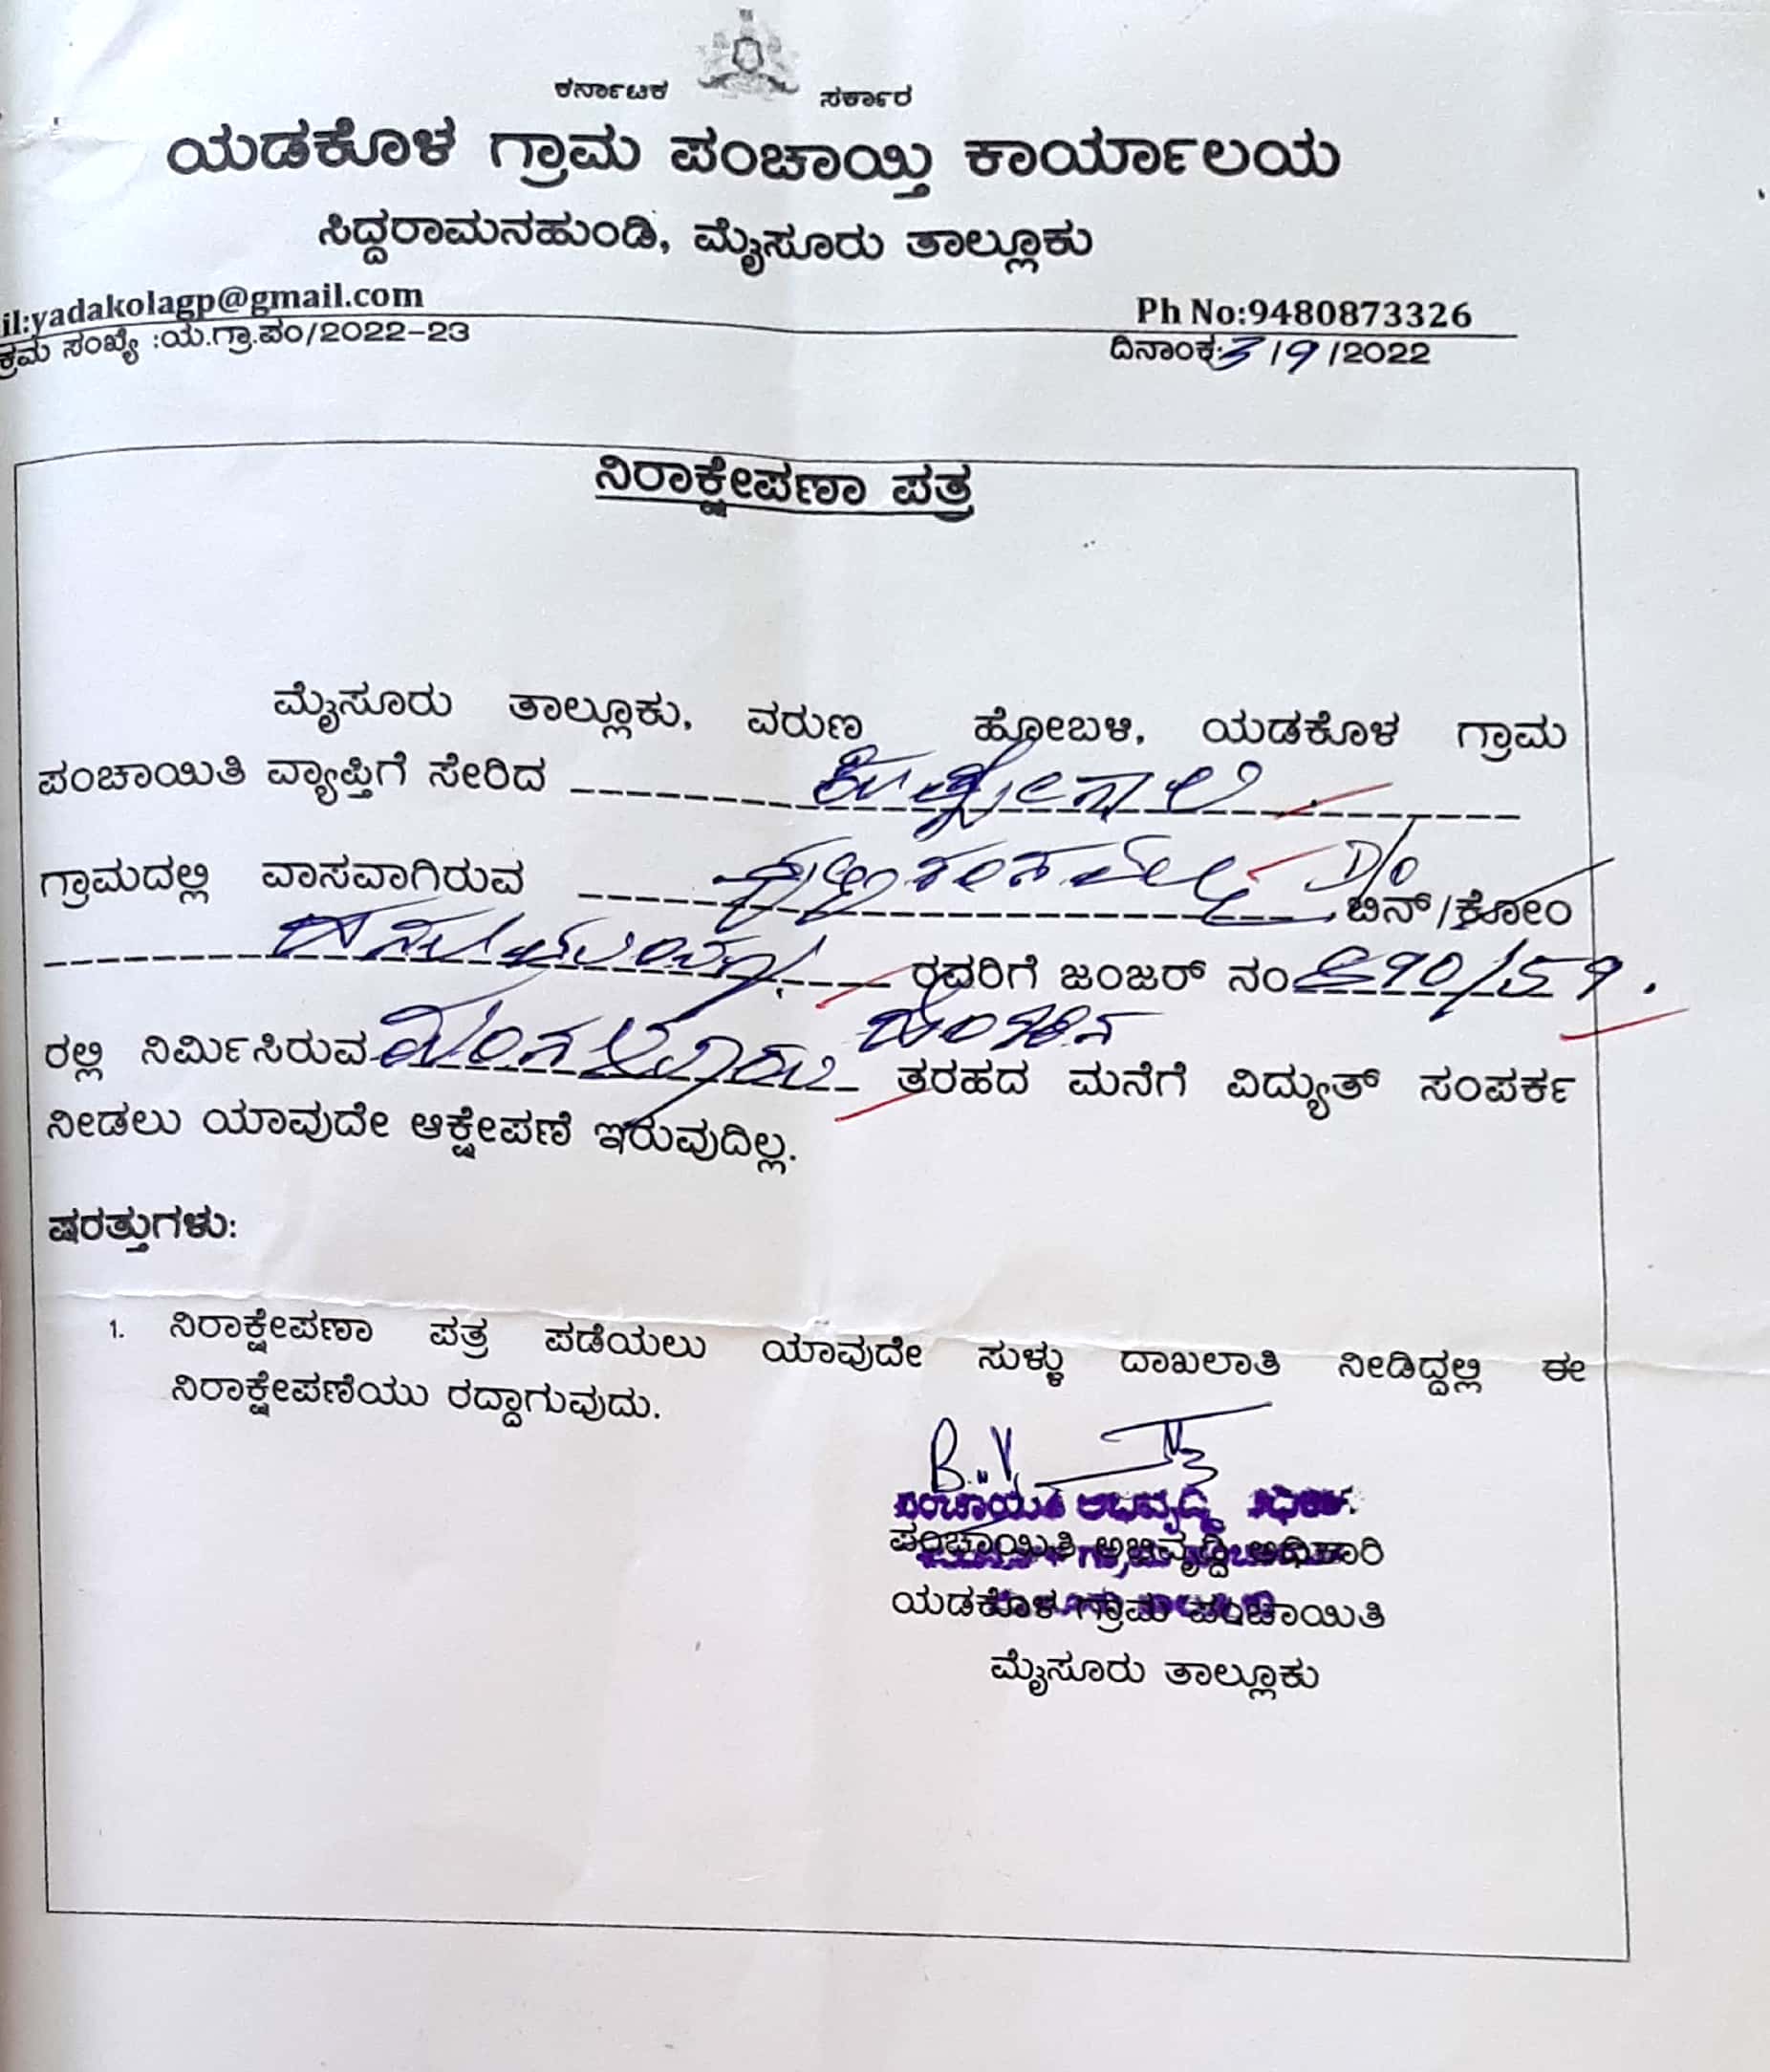 ಕರ್ನಾಟಕ ಸರ್ಕಾರ
ಯಡಕೊಳ ಗ್ರಾಮ ಪಂಚಾಯ್ತಿ ಕಾರ್ಯಾಲಯ
ಸಿದ್ದರಾಮನಹುಂಡಿ, ಮೈಸೂರು ತಾಲ್ಲೂಕು
il:yadakolagp@gmail.com Ph No:9480873326
ಕ್ರಮ ಸಂಖ್ಯೆ :ಯ.ಗ್ರಾ.ಪಂ/2022-23 ದಿನಾಂಕ:3/9/2022
ನಿರಾಕ್ಷೇಪಣಾ ಪತ್ರ
ಮೈಸೂರು ತಾಲ್ಲೂಕು, ವರುಣ ಹೋಬಳಿ, ಯಡಕೊಳ ಗ್ರಾಮ
ಪಂಚಾಯಿತಿ ವ್ಯಾಪ್ತಿಗೆ ಸೇರಿದ
ಗ್ರಾಮದಲ್ಲಿ ವಾಸವಾಗಿರುವ D/o ಬಿನ್/ಕೋಂ
ರವರಿಗೆ ಜಂಜರ್ ನಂ
ರಲ್ಲಿ ನಿರ್ಮಿಸಿರುವ ಮಂಗಳೂರು ಹೆಂಚಿನ ತರಹದ ಮನೆಗೆ ವಿದ್ಯುತ್ ಸಂಪರ್ಕ
ನೀಡಲು ಯಾವುದೇ ಆಕ್ಷೇಪಣೆ ಇರುವುದಿಲ್ಲ.
ಷರತ್ತುಗಳು:
1. ನಿರಾಕ್ಷೇಪಣಾ ಪತ್ರ ಪಡೆಯಲು ಯಾವುದೇ ಸುಳ್ಳು ದಾಖಲಾತಿ ನೀಡಿದ್ದಲ್ಲಿ ಈ
ನಿರಾಕ್ಷೇಪಣೆಯು ರದ್ದಾಗುವುದು.
ಪಂಚಾಯಿತಿ ಅಭಿವೃದ್ದಿ ಅಧಿಕಾರಿ
ಯಡಕೊಳ ಗ್ರಾಮ ಪಂಚಾಯಿತಿ
ಮೈಸೂರು ತಾಲ್ಲೂಕು